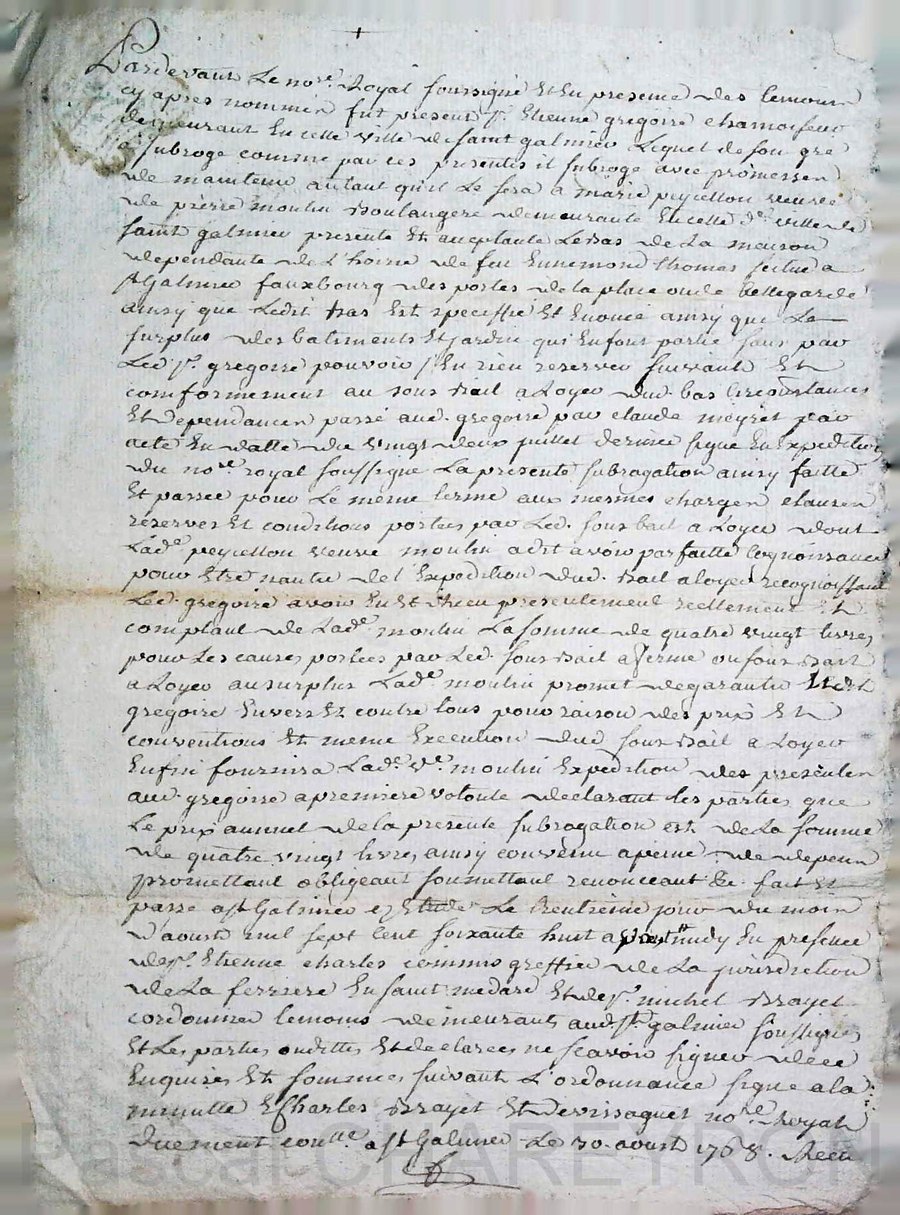 Pardevant Le no.re Royal soussigné Et En presence des temoins
cy apres nommés fut present s.r Etienne gregoire chamoiseur
demeurant En cette ville de saint galmier Lequel de son gré
a subrogé comme par ces presentes il subroge avec promesse
de maintenir autant qu'il Le sera a marie peyrellon veuve
de pierre moulin Boulangere demeurante En cette d.e ville de
saint galmier presente Et acceptante Le Bas de La maison
dependante de L'hoirie de feu Ennemond thomas scitué a
s.t Galmier fauxbourg des portes de la place ou de bellegarde
ainsy que Ledit Bas Est speciffié Et Enoncé ainsy que Le
surplus des batiments Et jardin qui En font partie sans par
Led. s.r gregoire pouvoir s'En rien reserver suivant Et
conformement au sous Bail a Loyer dud. bas Circonstances
Et dependances passé aud. gregoire par claude meyret par
acte En datte du vingt deux juillet dernier signé En Expedition
du no.re royal soussigné La presente subrogation ainsy faitte
Et passée pour Le meme terme aux mesmes charges clauses
reserves Et conditions portées par Led. sous bail a Loyer dont
Lad.e peyrellon veuve moulin a dit avoir parfaitte Cognoissance
pour Etre nantie de l'Expedition dud. Bail a loyer recognoissant
Led. gregoire avoir Eu Et Receu presentement reellement Et
comptant de Lad.e moulin La somme de quatre vingt livres
pour Les causes portées par Led. sous Bail a ferme ou sous Bail
a Loyer au surplus Lad.e moulin promet de garantir Ledit
gregoire Envers Et contre tous pour raison des prix Et
conventions Et meme Execution dud. sous Bail a Loyer
Enfin fournira Lad.e v.e moulin Expedition des presentes
aud. gregoire a premiere volonté declarant les parties que
Le prix annuel de la presente subrogation est de La somme
de quatre vingt livres ainsy convenu a peine de depens
promettant obligeant soumettant renonceant &c. fait Et
passé a s.t Galmier Etude Le trentieme jour du mois
d'aoust mil sept cent soixante huit apres midy En presence
de s.r Etienne charles commis greffier de La jurisdiction
de La ferriere En saint medard Et de s.r michel Brayet
cordonnier temoins demeurants aud. s.t galmier soussignés
Et Les parties ont declaré ne scavoir signer de ce
Enquises Et sommées suivant L'ordonnance signé a la
minutte E Charles Brayet Et devissaguet no.re Royal
Duement con.llé a s.t Galmier Le 30 aoust 1768. Receu
Pascal CHAREYRON